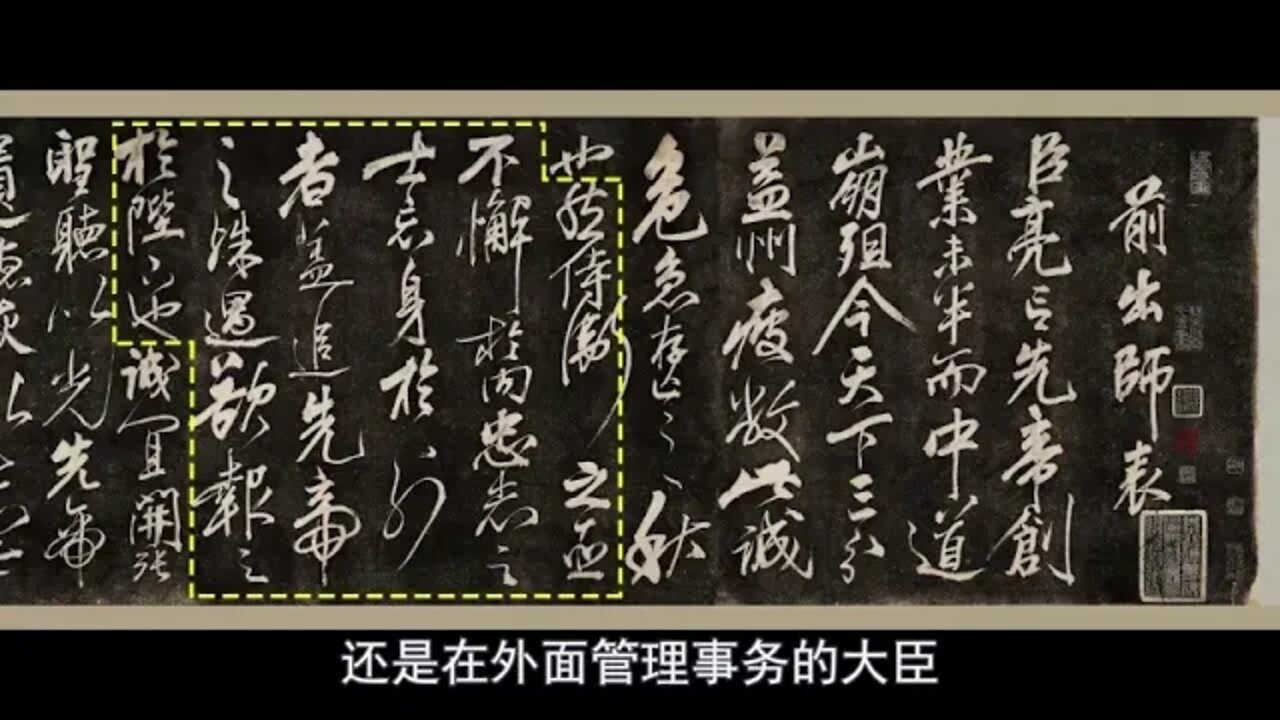 前出師表
臣亮言先帝創
業未半而中道
崩殂今天下三分
益州疲敝此誠
危急存亡之秋
也然侍衛之臣
不懈於内忠志之
士忘身於外
者蓋追先帝
之殊遇欲報之
於陛下也誠宜開張
聖聽以光先帝
还是在外面管理事务的大臣